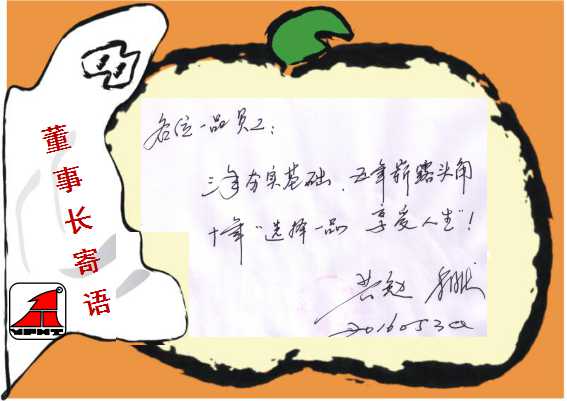 董事长寄语
各位一品员工：
三年夯实基础、五年崭露头角
十年“选择一品 享受人生”！
共勉
20160530
YPHT